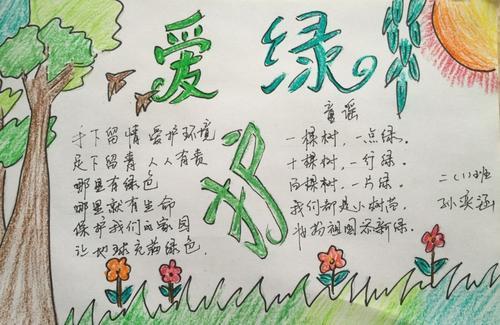 爱 绿
护
手下留情 爱护环境
足下留青 人人有责
哪里有绿色
哪里就有生命
保护我们的家园
让地球充满绿色.
童谣
一棵树,一点绿。
十棵树,一行绿。
百棵树,一片绿。
我们都是小树苗,
妆扮祖国添新绿。
二(1)班
孙奕涵